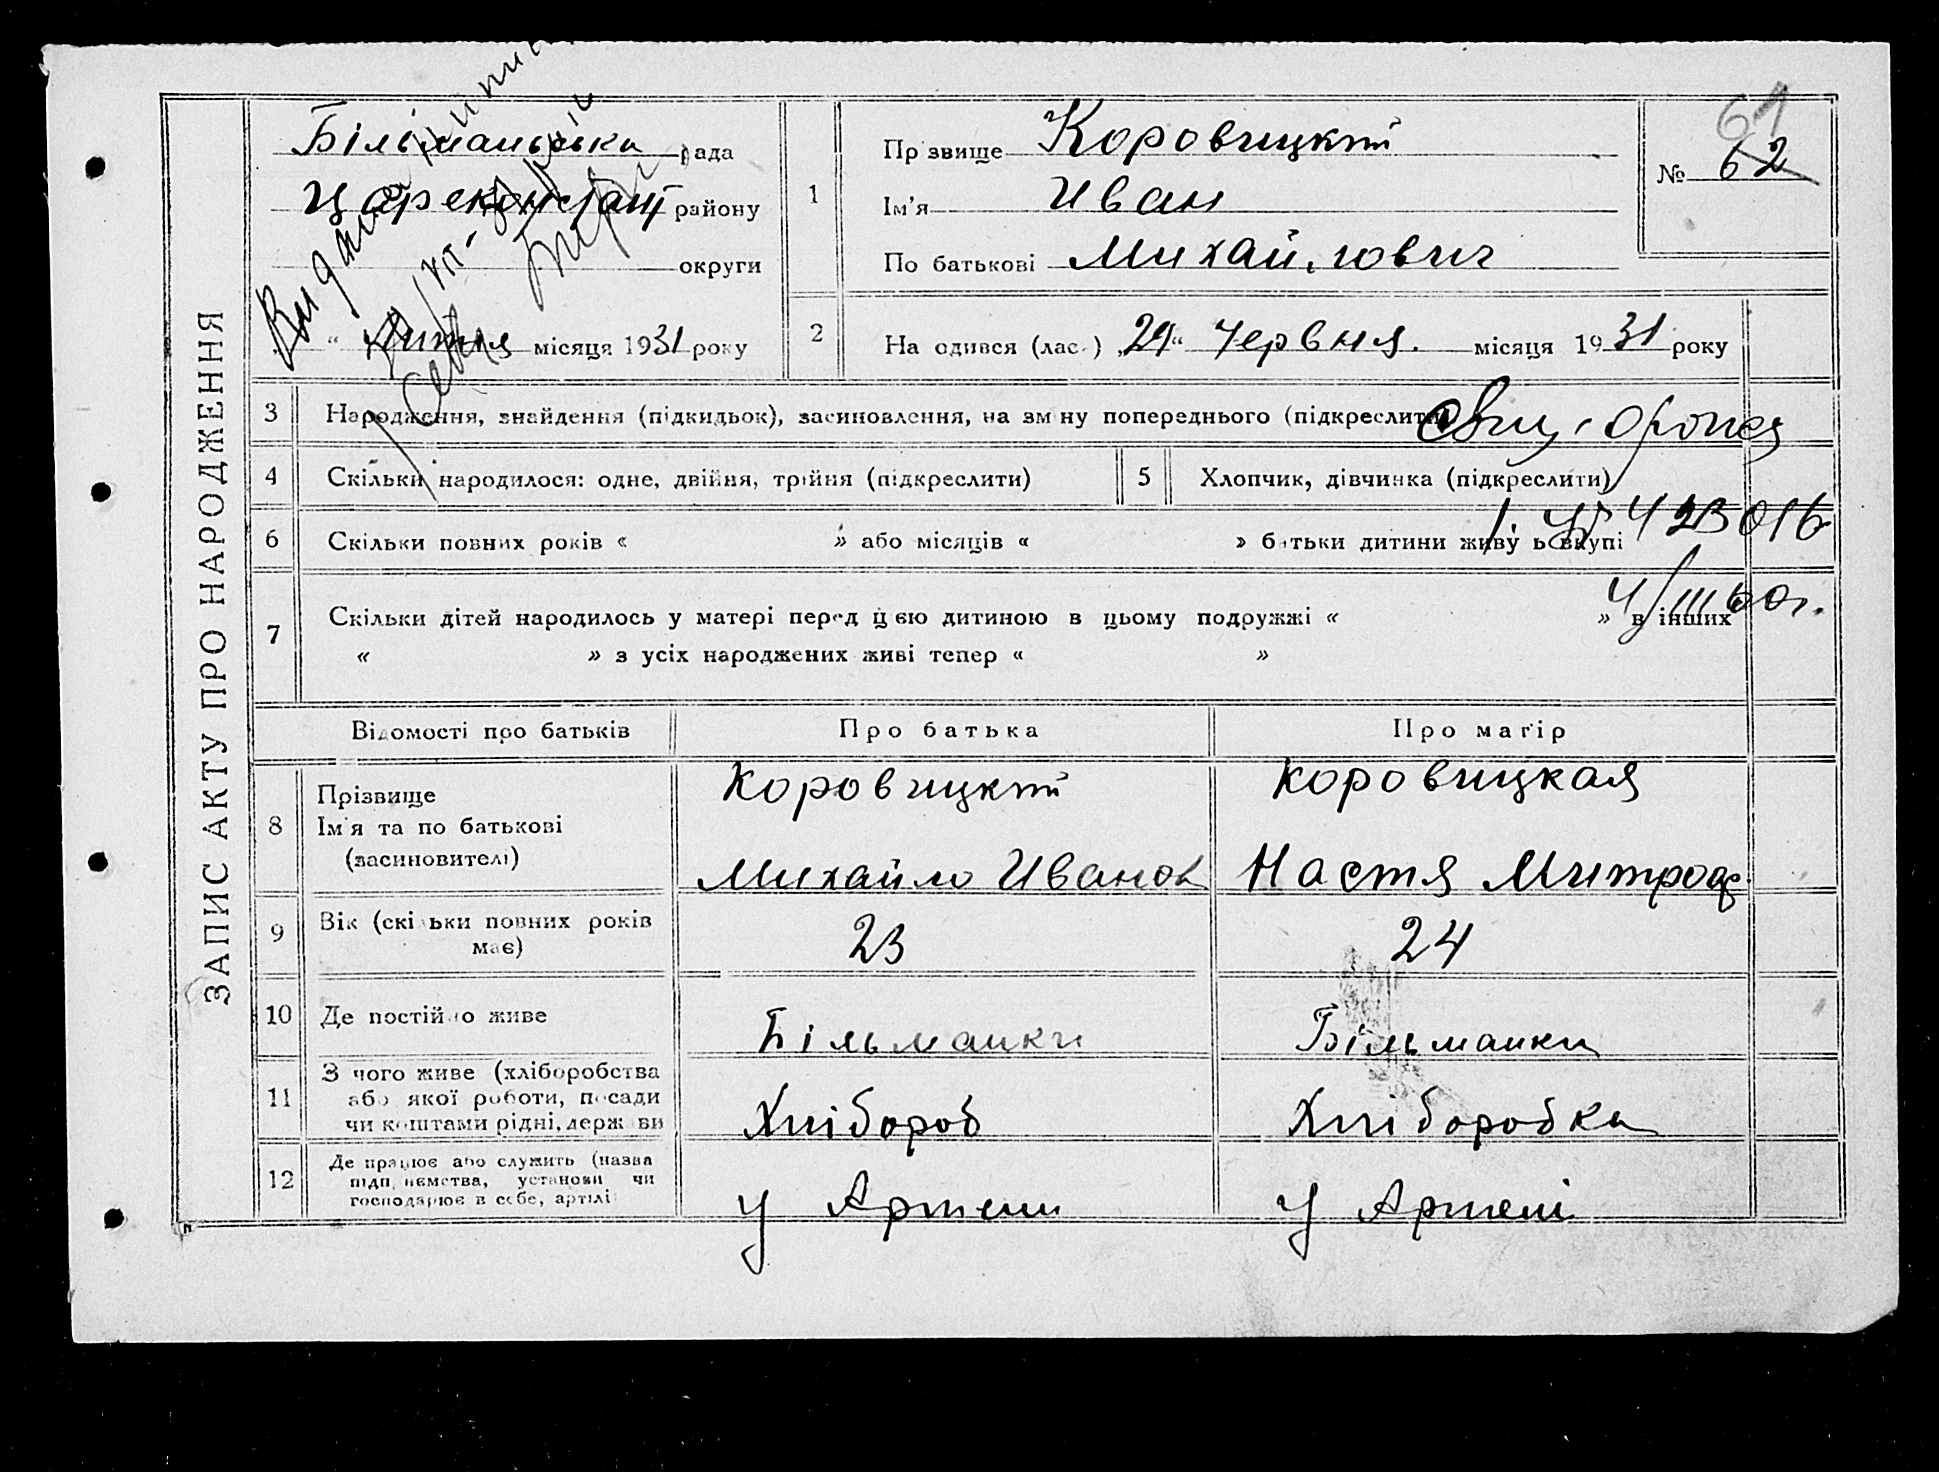 ЗАПИС АКТУ ПРО НАРОДЖЕННЯ
Більманська рада
Царекопстант району
округи
" Липня місяця 1931 року
1
Прізвище Коровицкий
Ім'я Иван
По батькові Михайлович
№ 62
61
2
На одився (лас.) „29" Червня. місяця 1931 року
3 Народження, знайдення (підкидьок), засиновлення, на зміну попереднього (підкреслити)
4 Скільки народилося: одне, двійня, трійня (підкреслити)
5 Хлопчик, дівчинка (підкреслити)
423016
6 Скільки повних років « » або місяців « » батьки дитини живуть вкупі
4/III 60г.
7 Скільки дітей народилось у матері перед цією дитиною в цьому подружжі « » в інших
« » з усіх народжених живі тепер « »
Відомості про батьків Про батька Про матір
8 Прізвище
Ім'я та по батькові
(засиновителі)
Коровицкий Коровицкая
Михайло Иванов Настя Митроф.
9 Вік (скільки повних років
має)
23 24
10 Де постійно живе Більманки Більманки
11 З чого живе (хліборобства
або якої роботи, посади
чи коштами рідні, держави
Хлібороб Хліборобка
12 Де працює або служить (назва
підприємства, установи чи
господарює в себе, артілі
у Артели у Артелі